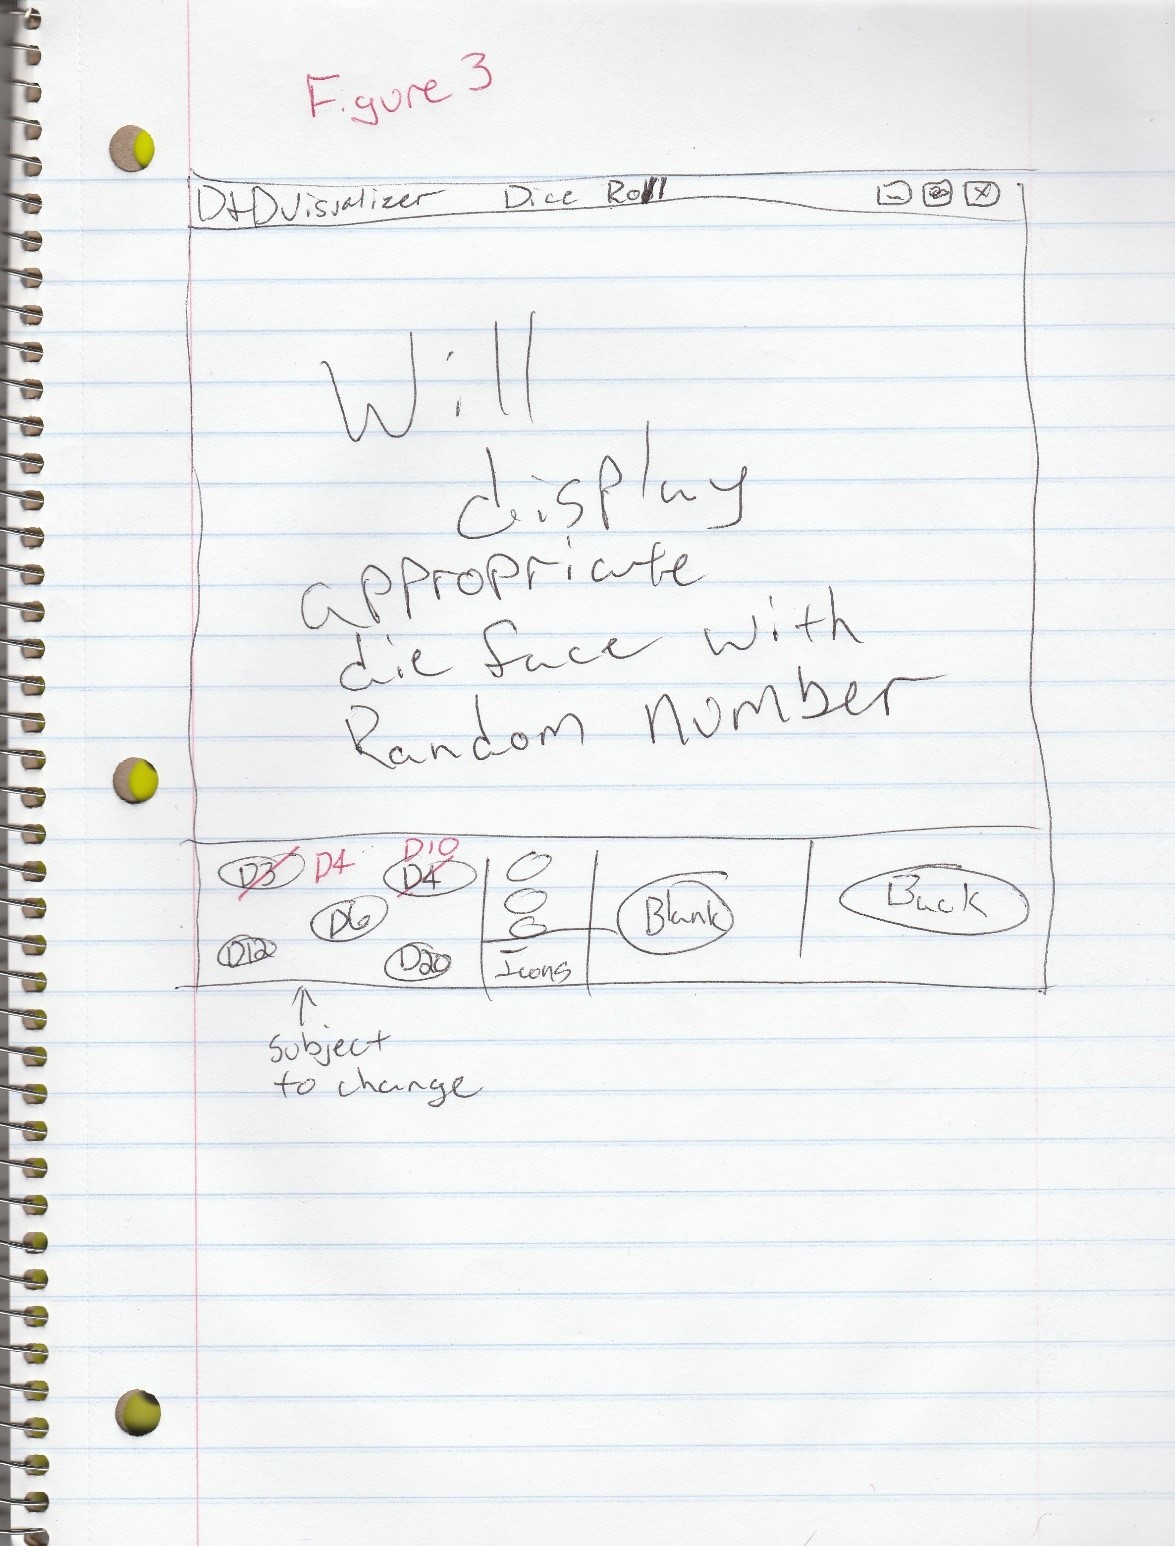 Figure 3
D+D Visualizer Dice Roll
Will
display
appropriate
die face with
Random number
D10
D3 D4 D4
D6
Blank Back
D12 D20 Icons
subject
to change